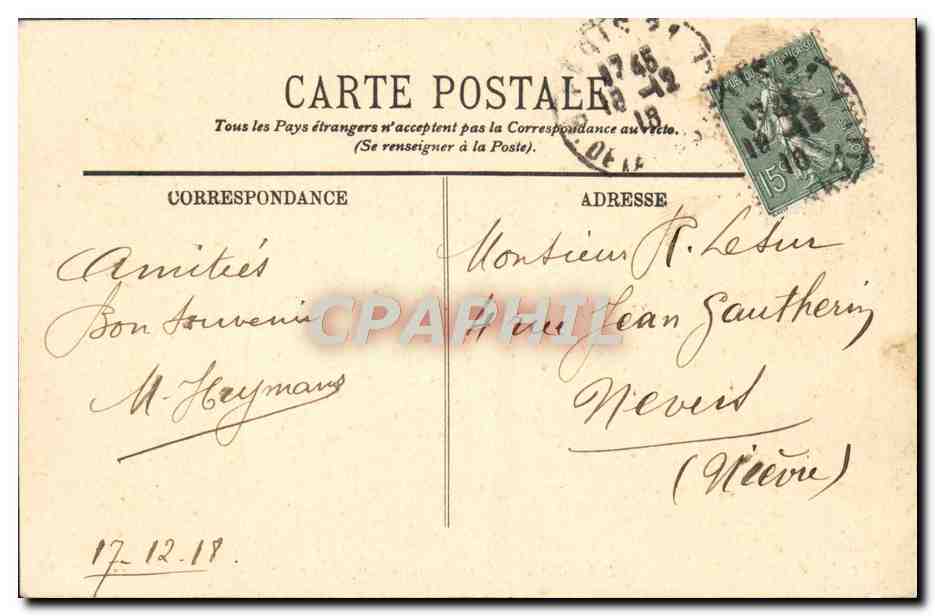 CARTE POSTALE
Tous les Pays étrangers n'acceptent pas la Correspondance au recto.
(Se renseigner à la Poste).
CORRESPONDANCE
Amitiés
Bon souvenir
M. Heymans
17-12-18.
ADRESSE
Monsieur R. Lesur
4 rue Jean Gautherin
Nevers
(Nièvre)
17 45
18 -12
18
15
CPAPHIL